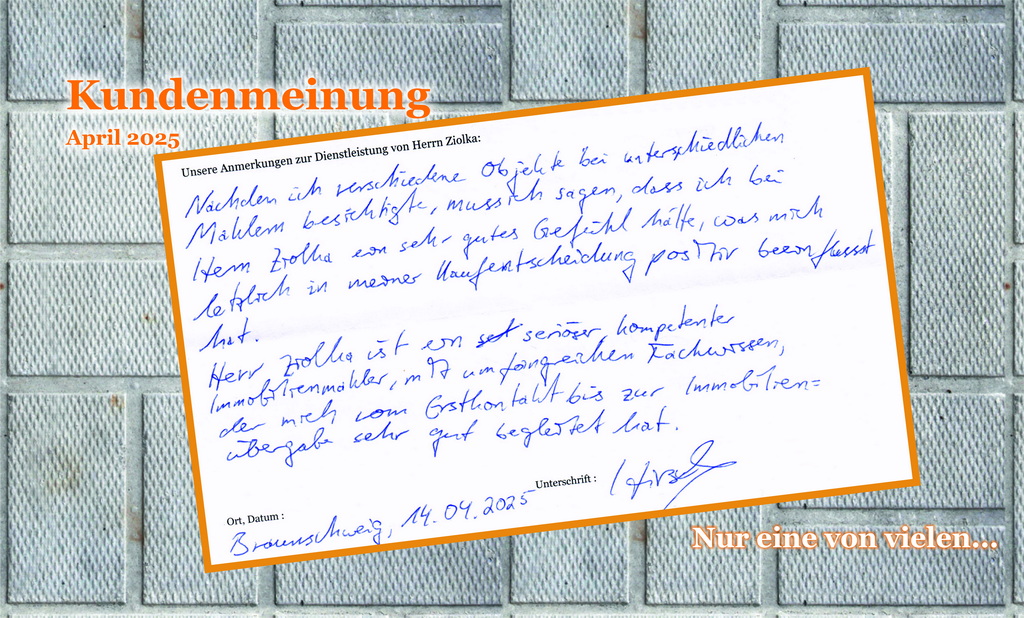 Kundenmeinung
April 2025
Unsere Anmerkungen zur Dienstleistung von Herrn Ziolka:
Nachdem ich verschiedene Objekte bei unterschiedlichen
Maklern besichtigte, muss ich sagen, dass ich bei
Herrn Ziolka ein sehr gutes Gefühl hatte, was mich
letzlich in meiner Kaufentscheidung positiv beeinflusst
hat.
Herr Ziolka ist ein seriöser, kompetenter
Immobilienmakler, mit umfangreichen Fachwissen,
der mich vom Erstkontakt bis zur Immobilien=
übergabe sehr gut begleitet hat.
Unterschrift :
Ort, Datum :
Braunschweig, 14.04.2025
Nur eine von vielen...